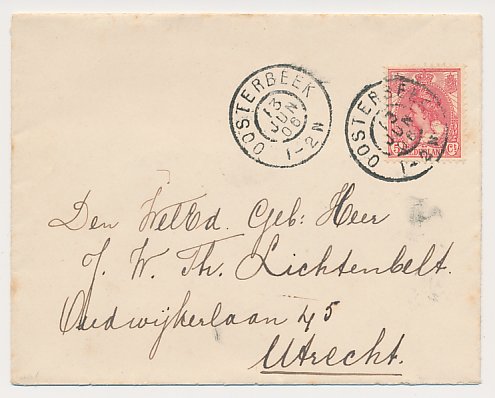 OOSTERBEEK
13
JUN
06
1-2N
OOSTERBEEK
13
JUN
06
1-2N
Den WelEd. Geb: Heer
J. W. Th. Lichtenbelt.
Oudwijkerlaan 45
Utrecht.